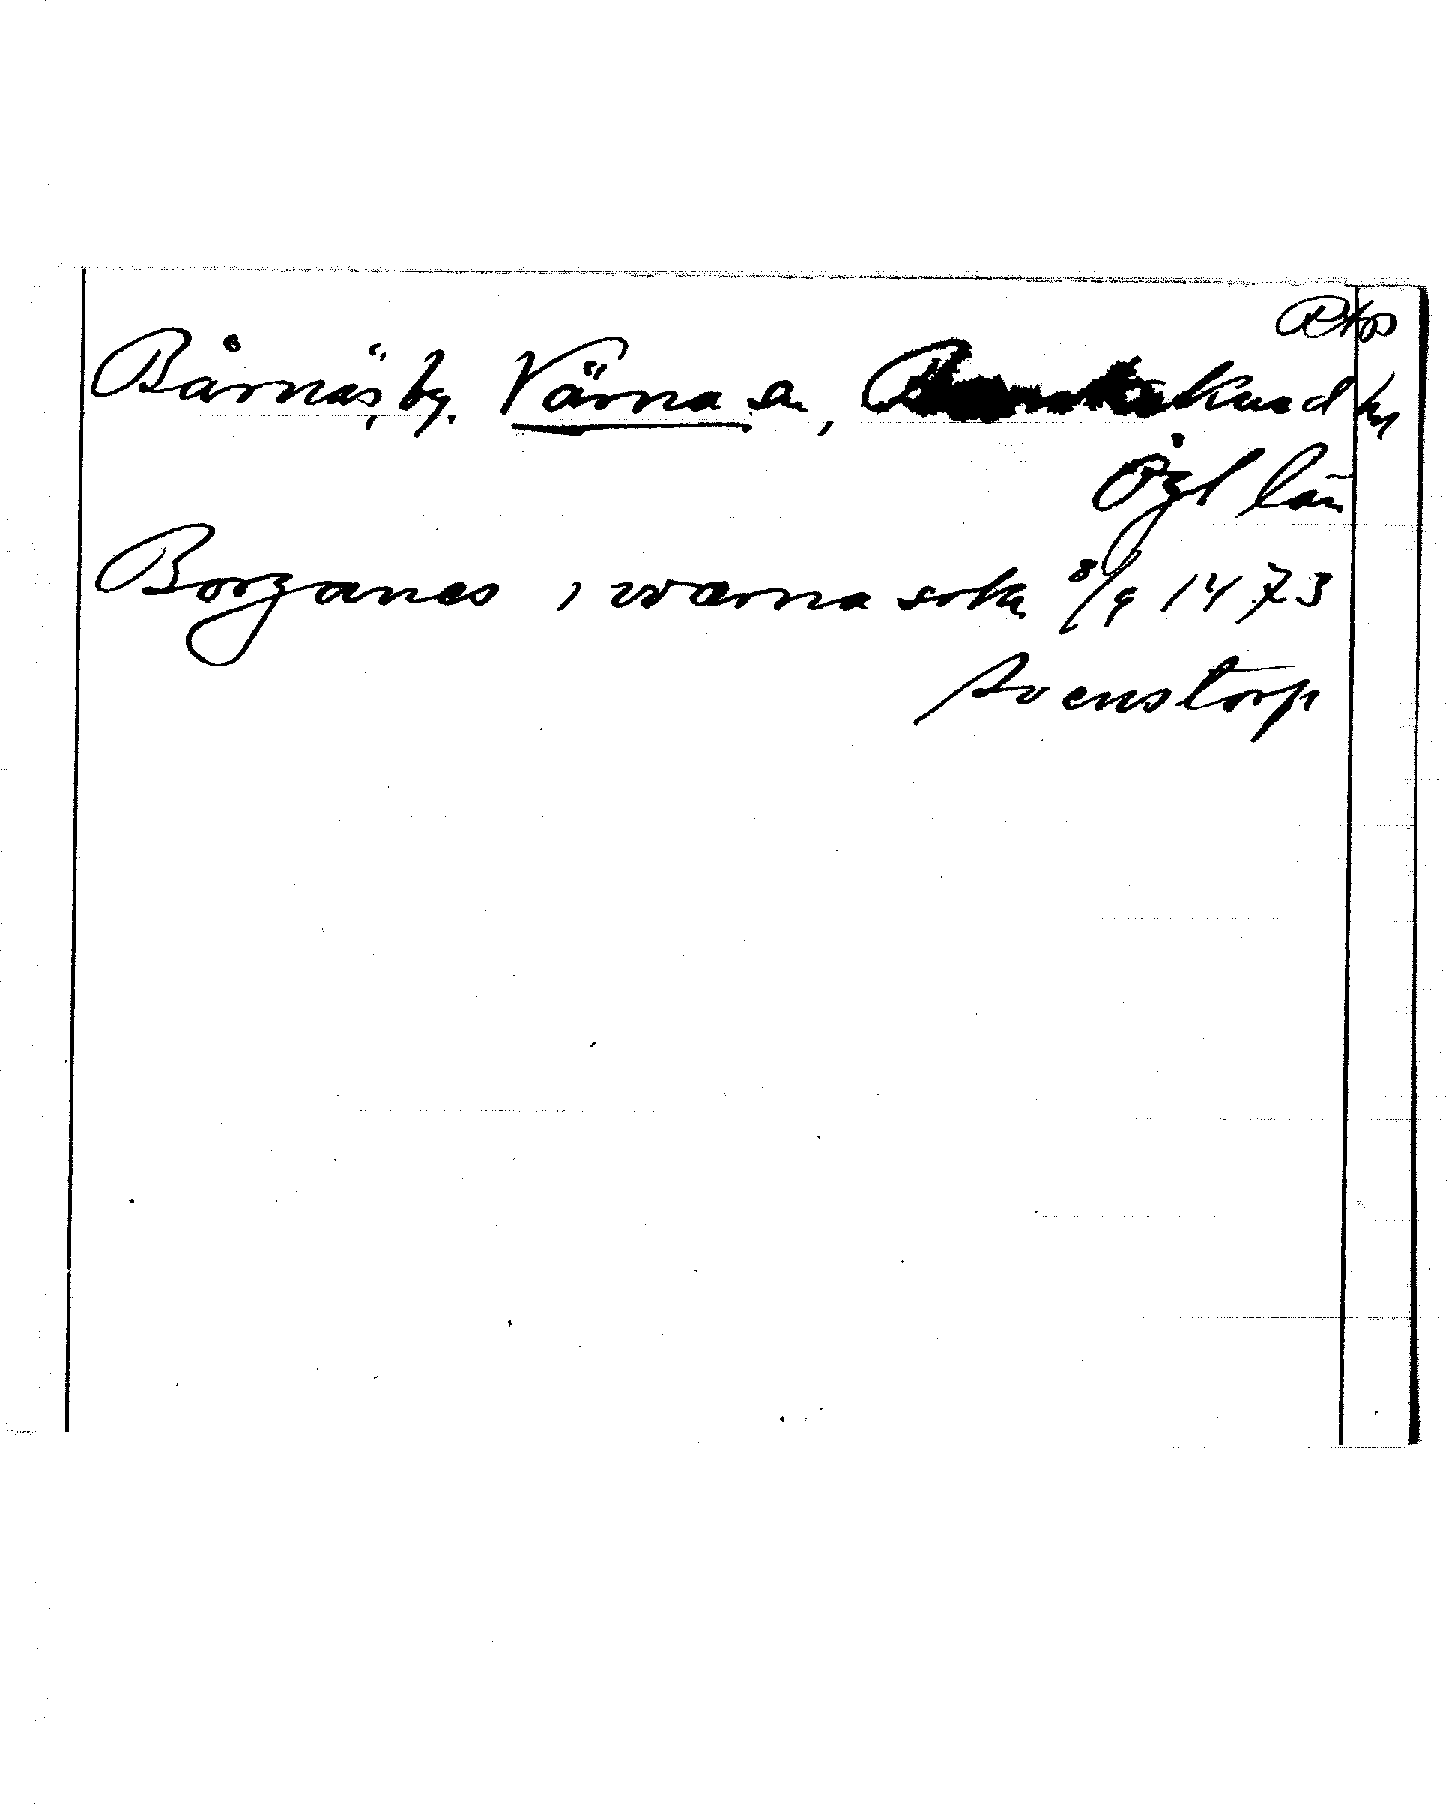 Bårnäs, by. Värna sn, Kind hd
Ögl län
Borganes i wærna sokn 8/9 1473
Svenstorp